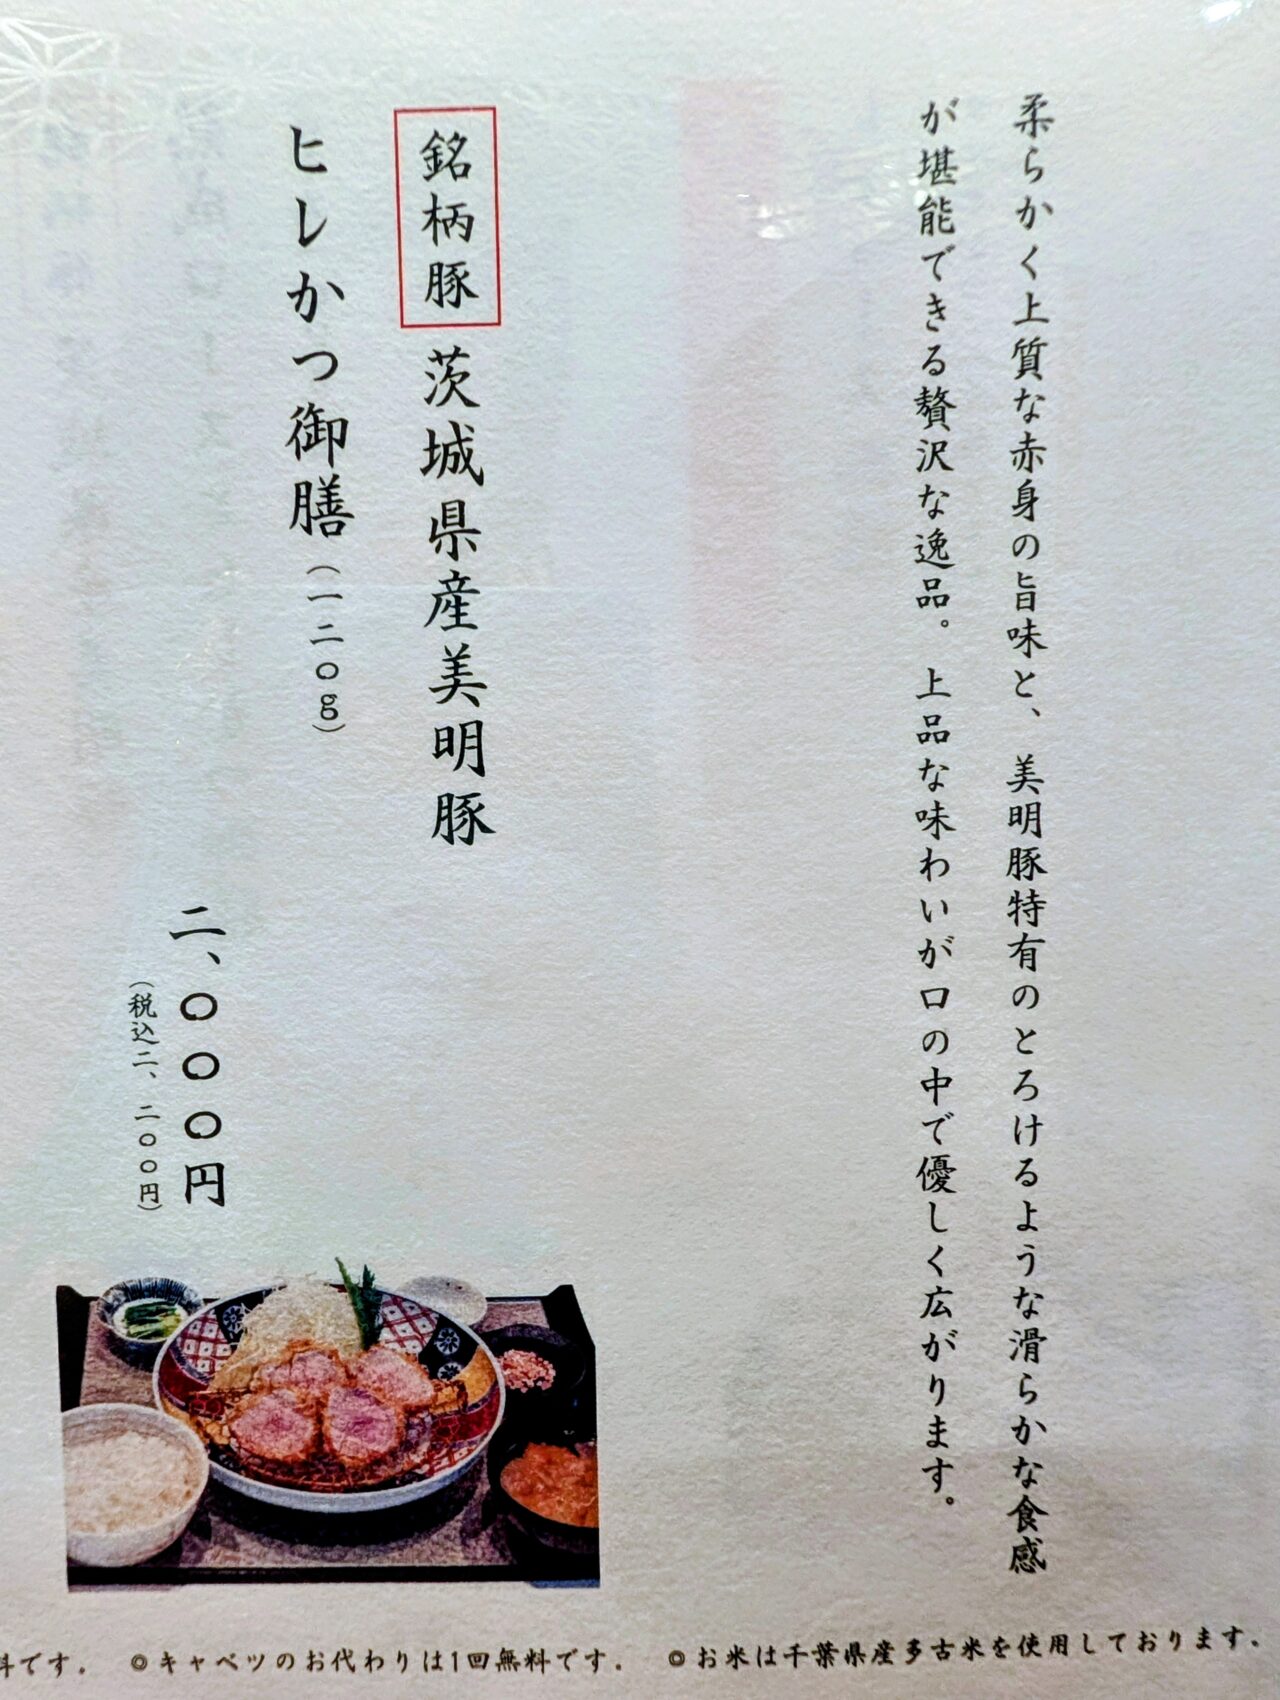 柔らかく上質な赤身の旨味と、美明豚特有のとろけるような滑らかな食感
が堪能できる贅沢な逸品。上品な味わいが口の中で優しく広がります。
銘柄豚 茨城県産美明豚
ヒレかつ御膳（一二〇g）
二、〇〇〇円
（税込二、二〇〇円）
料です。 ◎キャベツのお代わりは1回無料です。 ◎お米は千葉県産多古米を使用しております。